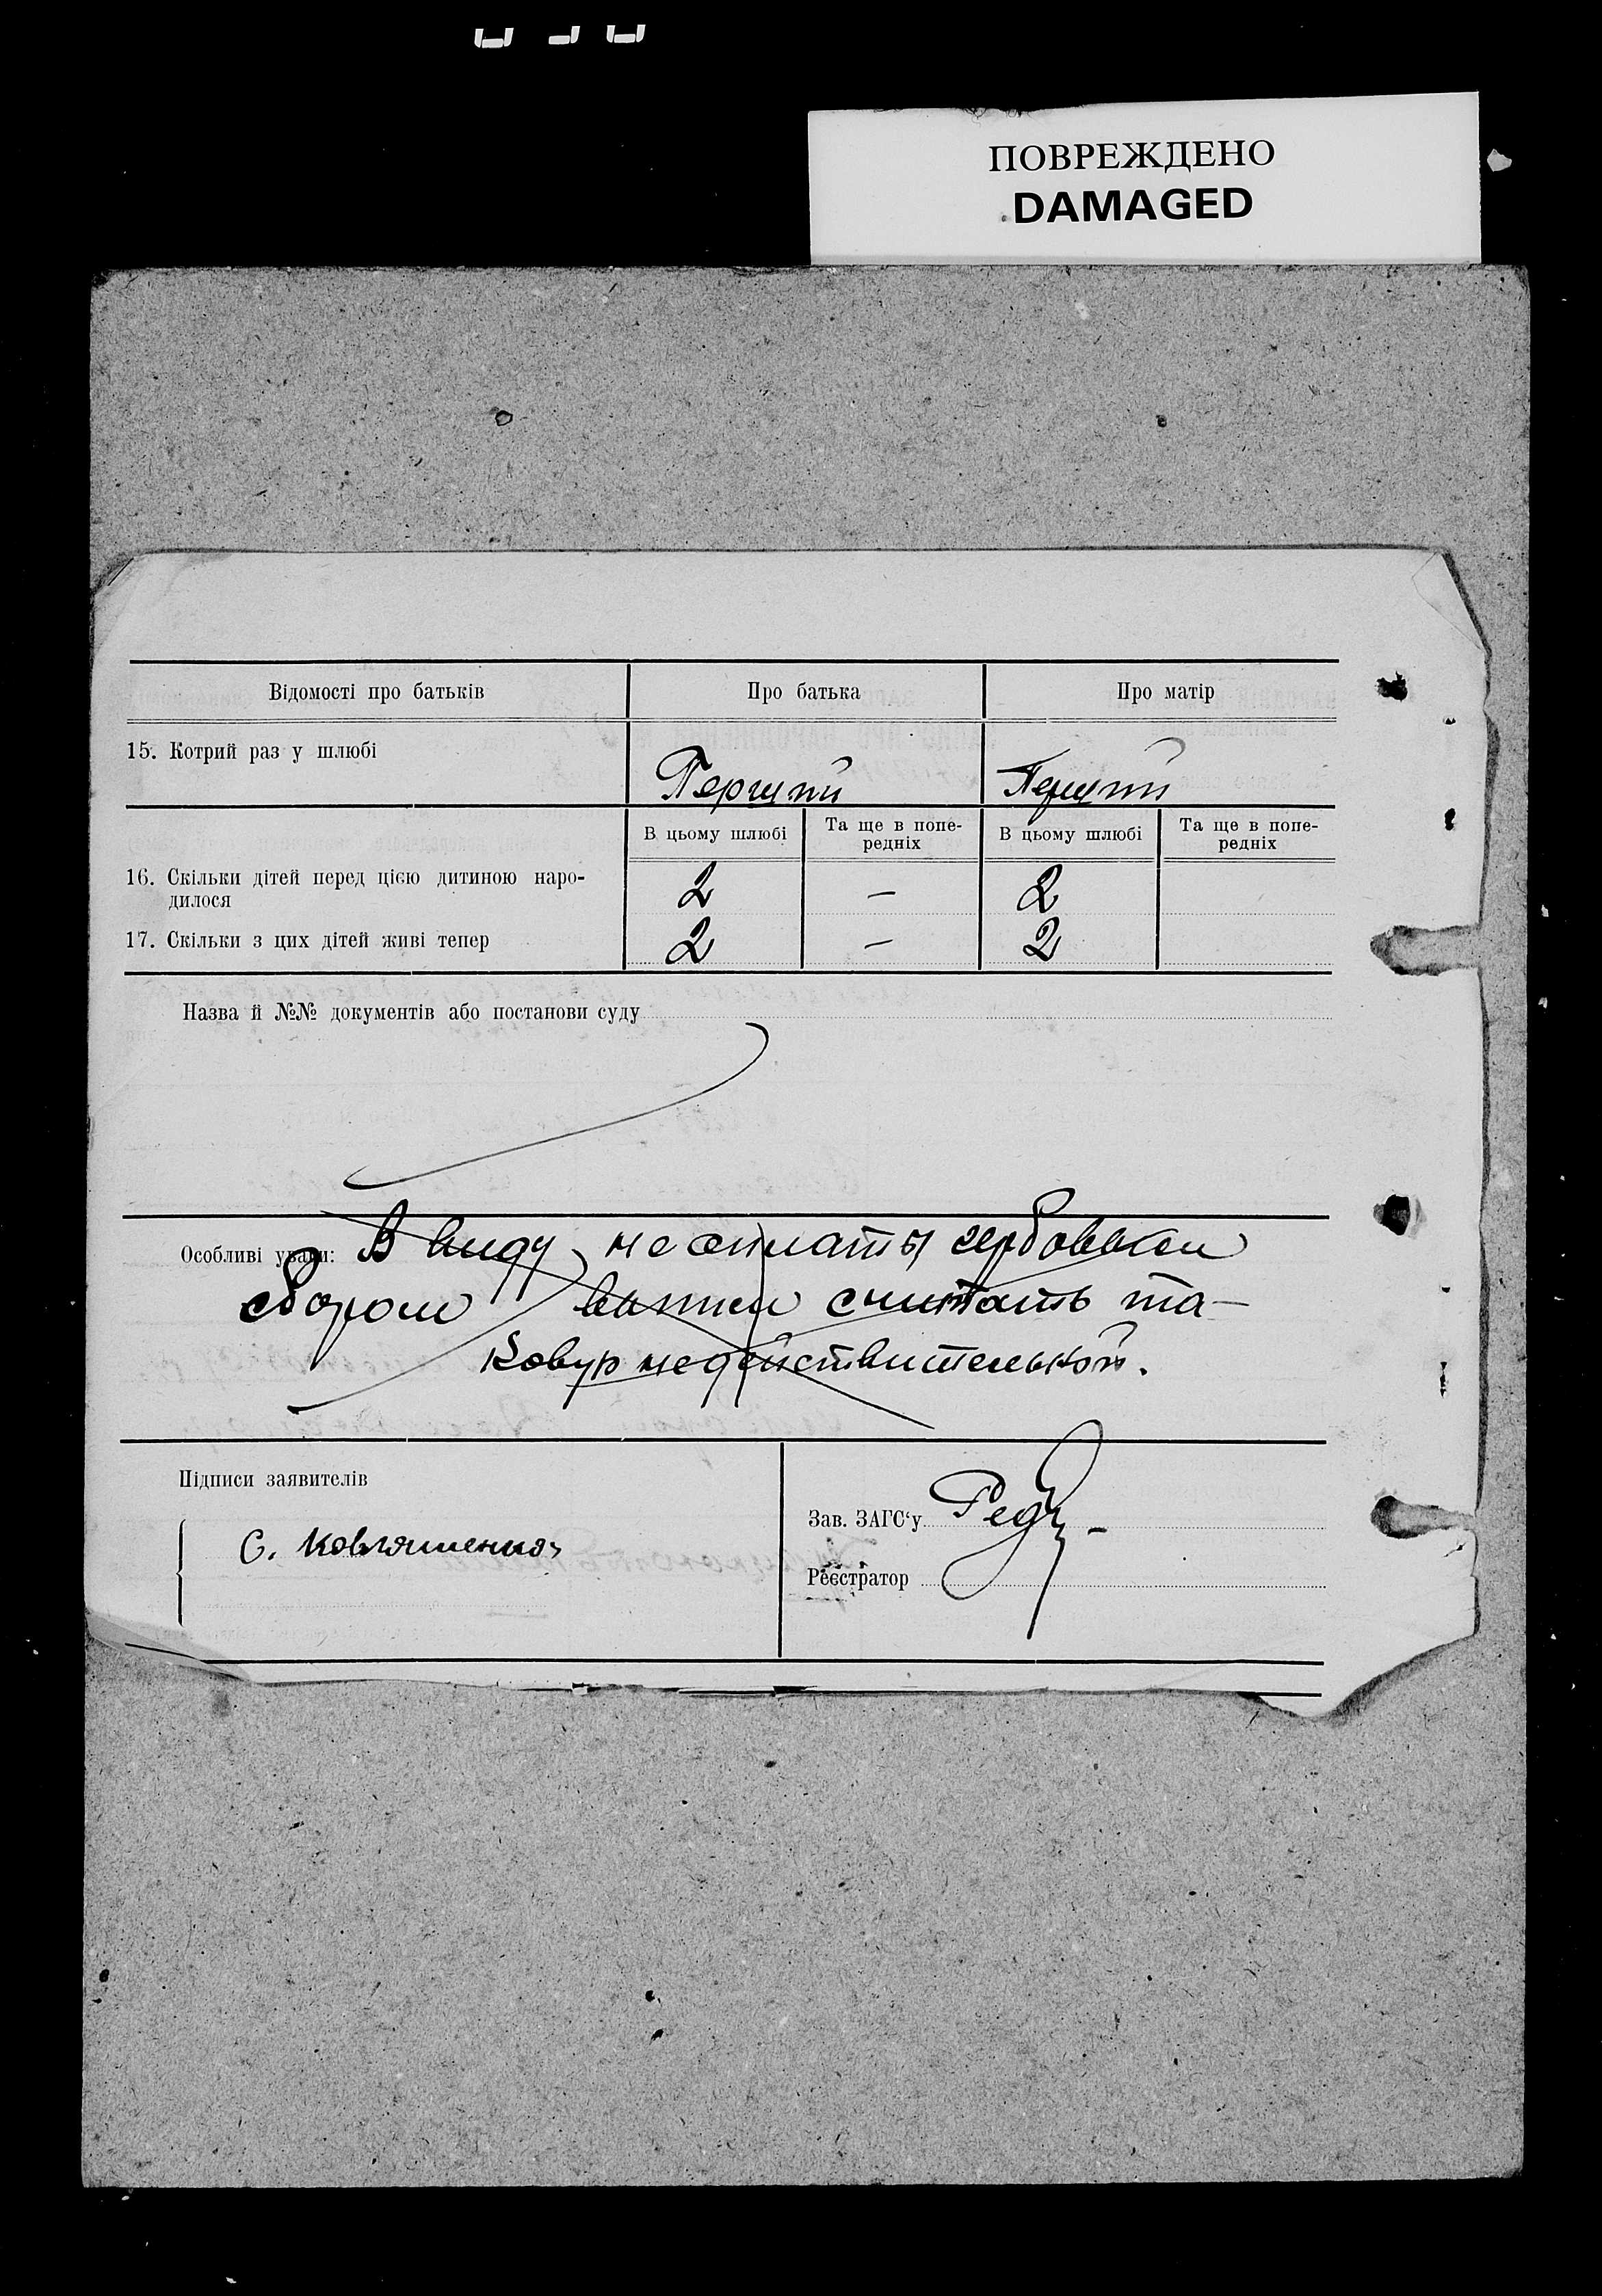 ПОВРЕЖДЕНО
DAMAGED
Відомості про батьків
Про батька
Про матір
15. Котрий раз у шлюбі
Перший
Перший
В цьому шлюбі
Та ще в попе-
редніх
В цьому шлюбі
Та ще в попе-
редніх
16. Скільки дітей перед цією дитиною наро-
дилося
2
–
2
17. Скільки з цих дітей живі тепер
2
–
2
Назва й №№ документів або постанови суду
Особливі уваги: В виду неоплаты гербовым
сбором считать та-
ковую недействительной.
Підписи заявителів
С.
Зав. ЗАГС‘у
Реєстратор